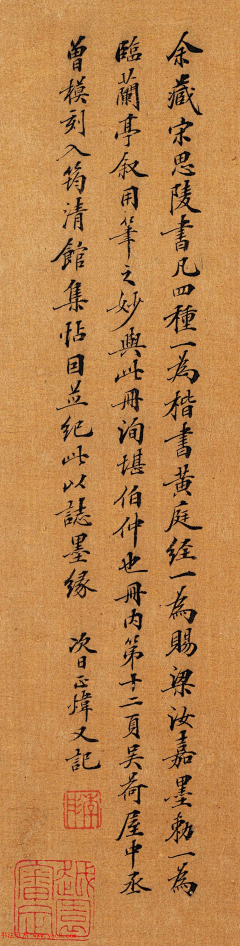 余藏宋思陵書凡四種一為楷書黃庭经一為賜梁汝嘉墨勅一為
臨蘭亭叙用筆之妙與此冊洵堪伯仲也冊内第十二頁吴荷屋中丞
曾模刻入筠清館集帖因并紀此以誌墨緣
次日正煒又記